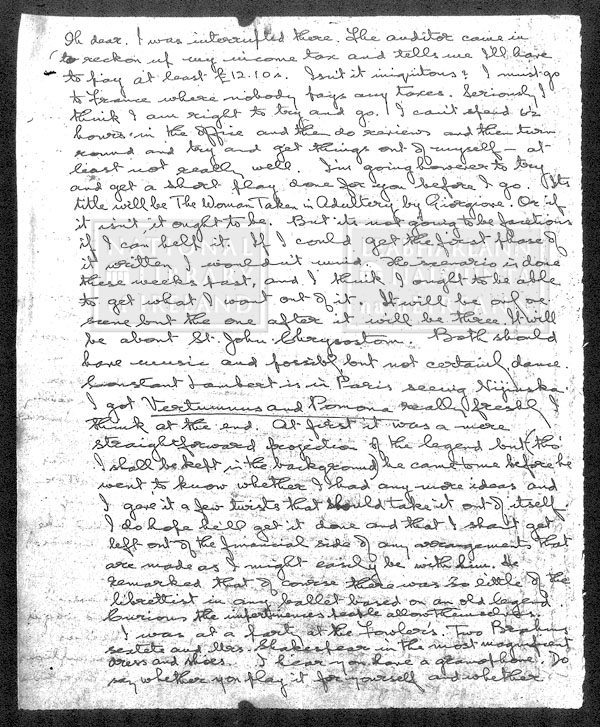 Oh dear. I was interrupted there. The auditor came in
to reckon up my income tax and tells me I'll have
to pay at least £12.10s. Isn't it iniquitous? I must go
to France where nobody pays any taxes. Seriously I
think I am right to try and go. I can't spend 6½
hours in the office and then do reviews and then turn
round and try and get things out of myself – at
least not really well. I'm going however to try
and get a short play done for you before I go. Its
title will be The Woman Taken in Adultery by Giorgione. Or if
it isn't it ought to be. But it's not going to be facetious
if I can help it. If I could get the first phase of
it written I wouldn't mind. The scenario is done
these weeks past, and I think I ought to be able
to get what I want out of it. It will be one
scene but the one after it will be three. It will
be about St. John Chrysostom. Both should
have music and possibly, but not certainly, dance.
Constant Lambert is in Paris seeing Nijinska
I got Vertumnus and Pomona really fresh I
think at the end. At first it was a mere
straightforward projection of the legend but (tho'
I shall be kept in the background) he came to me before he
went to know whether I had any more ideas and
I gave it a few twists that should take it out of itself
I do hope he'll get it done and that I shan't get
left out of the financial side of any arrangements that
are made as I might easily be with him. He
remarked that of course there was so little of the
librettist in any ballet based on an old legend
Curious the impertinences people allow themselves.
I was at a party at the Fowler's. Two Brahms
sextets and Mrs. Shakespear in the most magnificent
dress and shoes. I hear you have a gramophone. Do
say whether you play it for yourself and whether